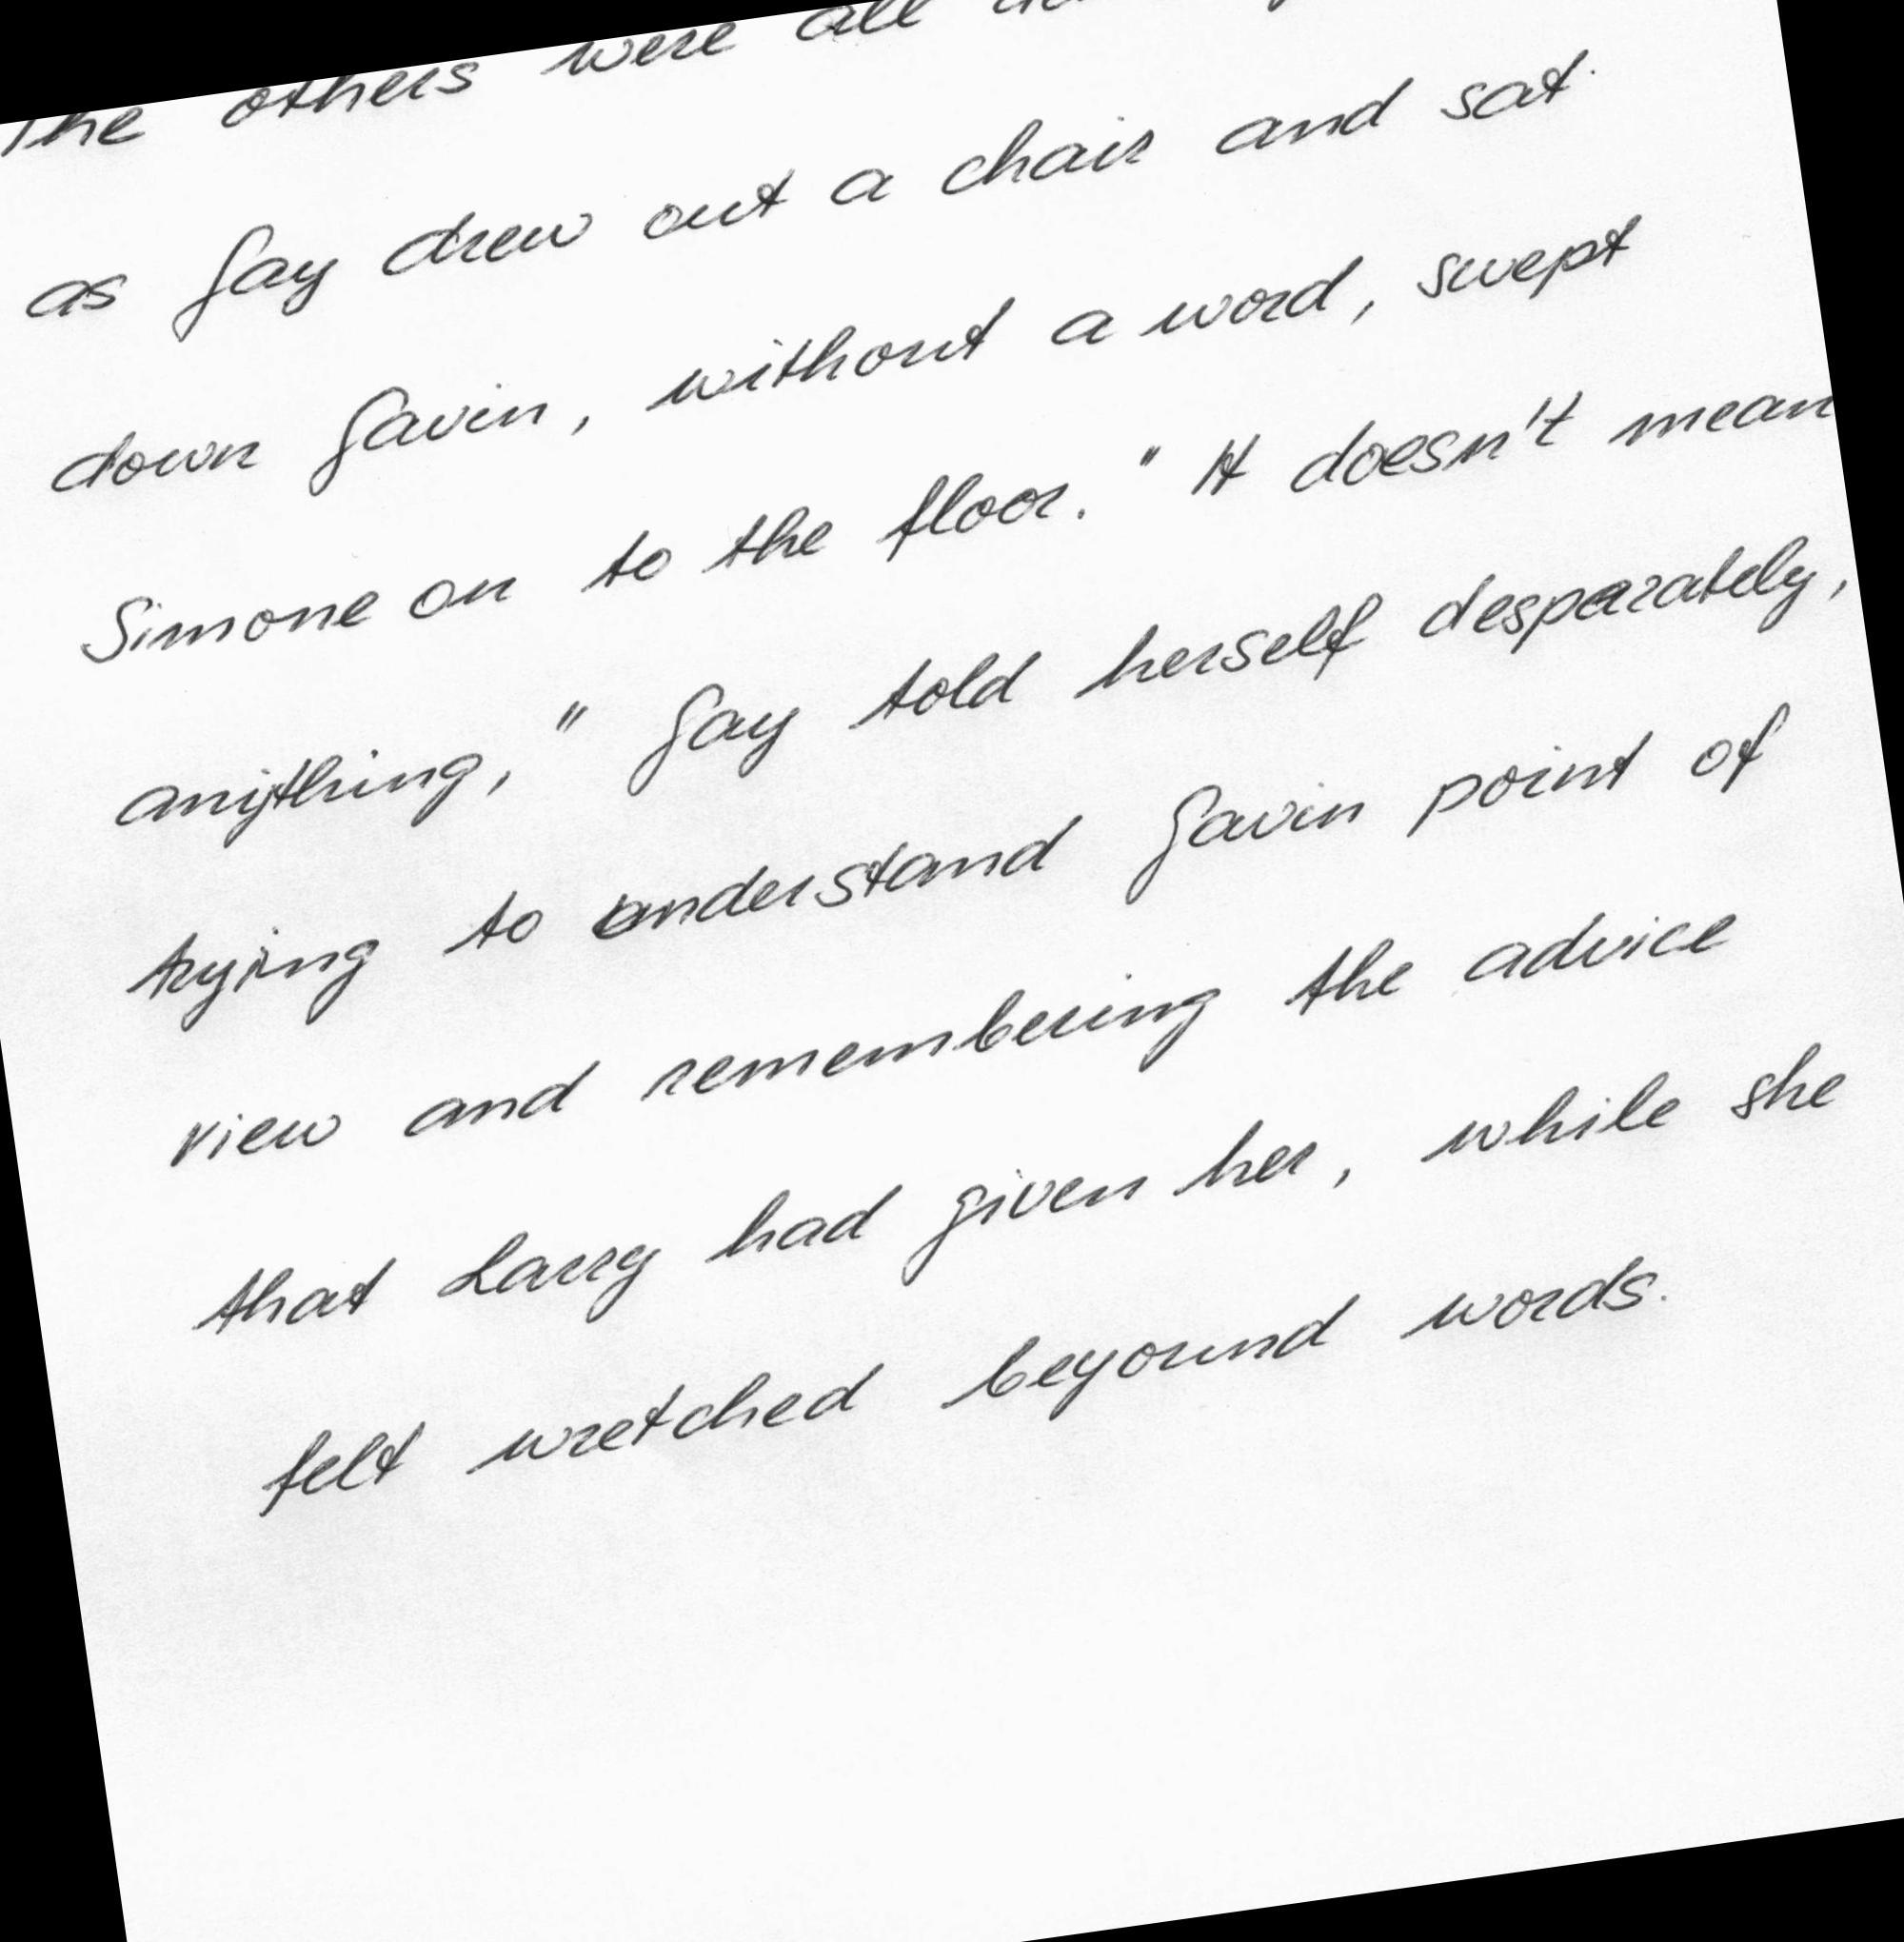 The others were all
as Gay drew out a chair and sat.
down Gavin, without a word, swept
Simone on to the floor. " It doesn't mean
anything, " Gay told herself desparately,
trying to understand Gavin point of
view and remembering the advice
that Larry had given her, while she
felt wretched beyound words.